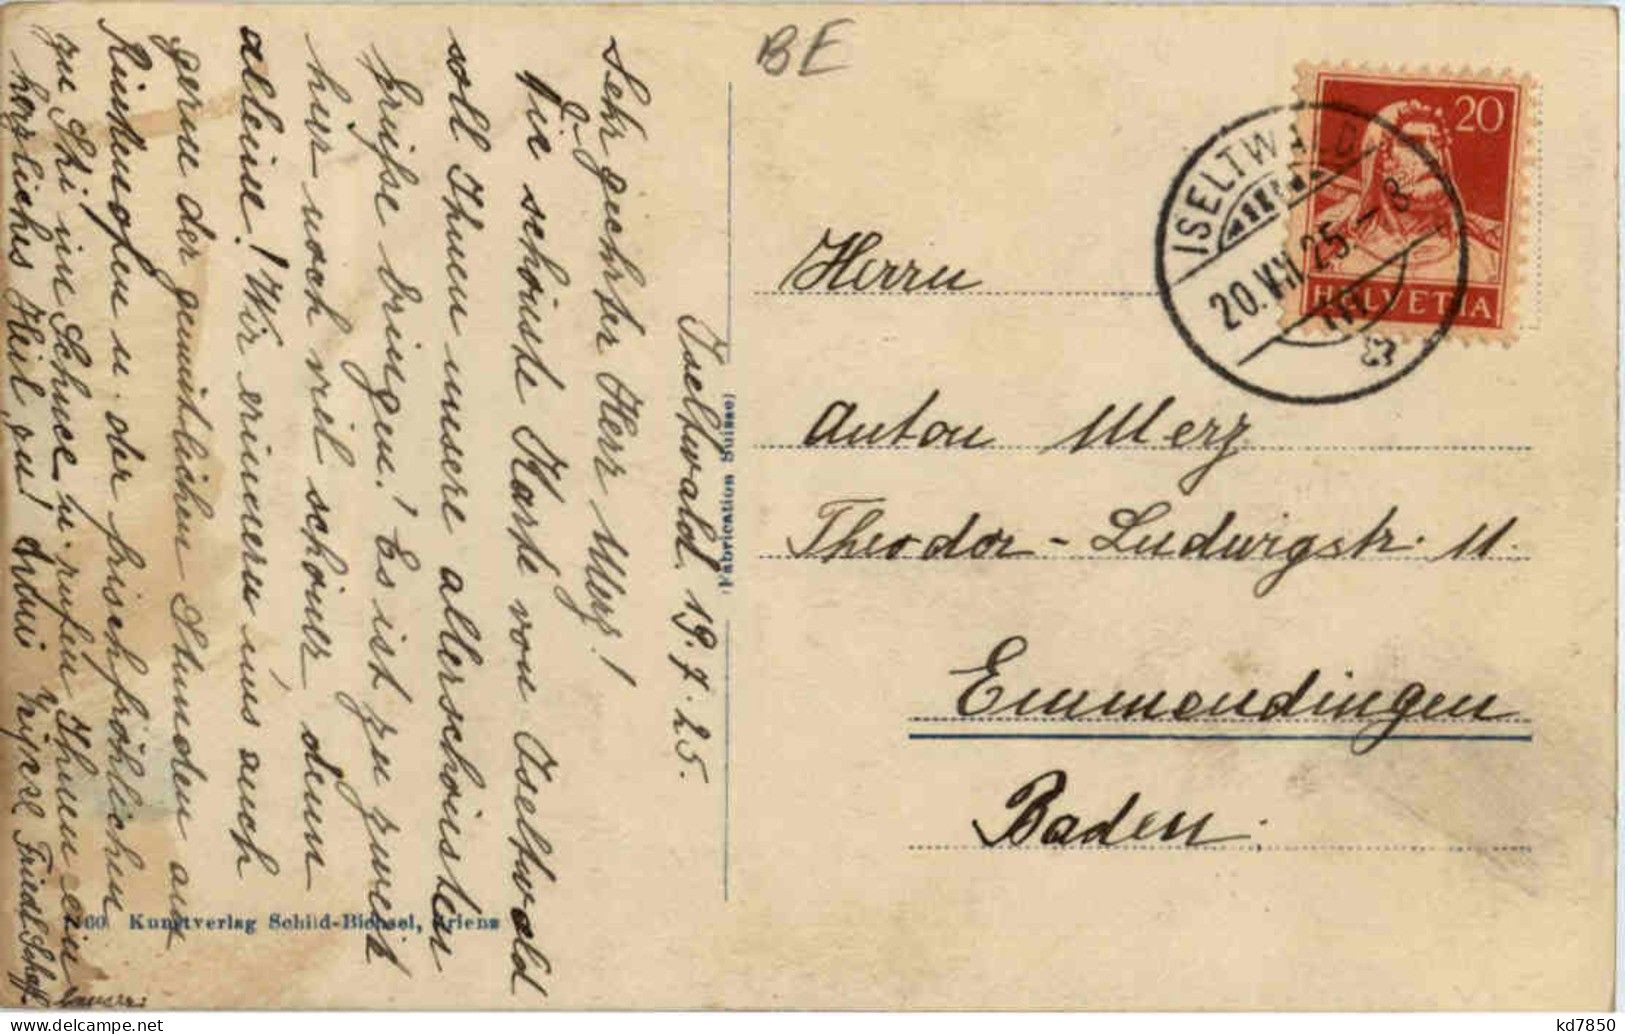 BE
20
HELVETIA
ISELTWALD
20.VII.25-8
Iseltwald, 19.7.25.
Sehr geehrter Herr Merz!
Die schönste Karte von Iseltwald
soll Ihnen unsere allerschönsten
Grüße bringen! Es ist zu zweit
hier noch viel schöner denn
alleine! Wir erinnern uns auch
gern der gemütlichen Stunden am
u. der frischfröhlichen
zu Ski im Schnee u. rufen Ihnen ein
herzliches Heil zu!
Friedl
(Fabrication Suisse)
Kunstverlag Schild-Bichsel, Brienz
Herrn
Anton Merz
Theodor-Ludwigstr. 11.
Emmendingen
Baden.
kd7850